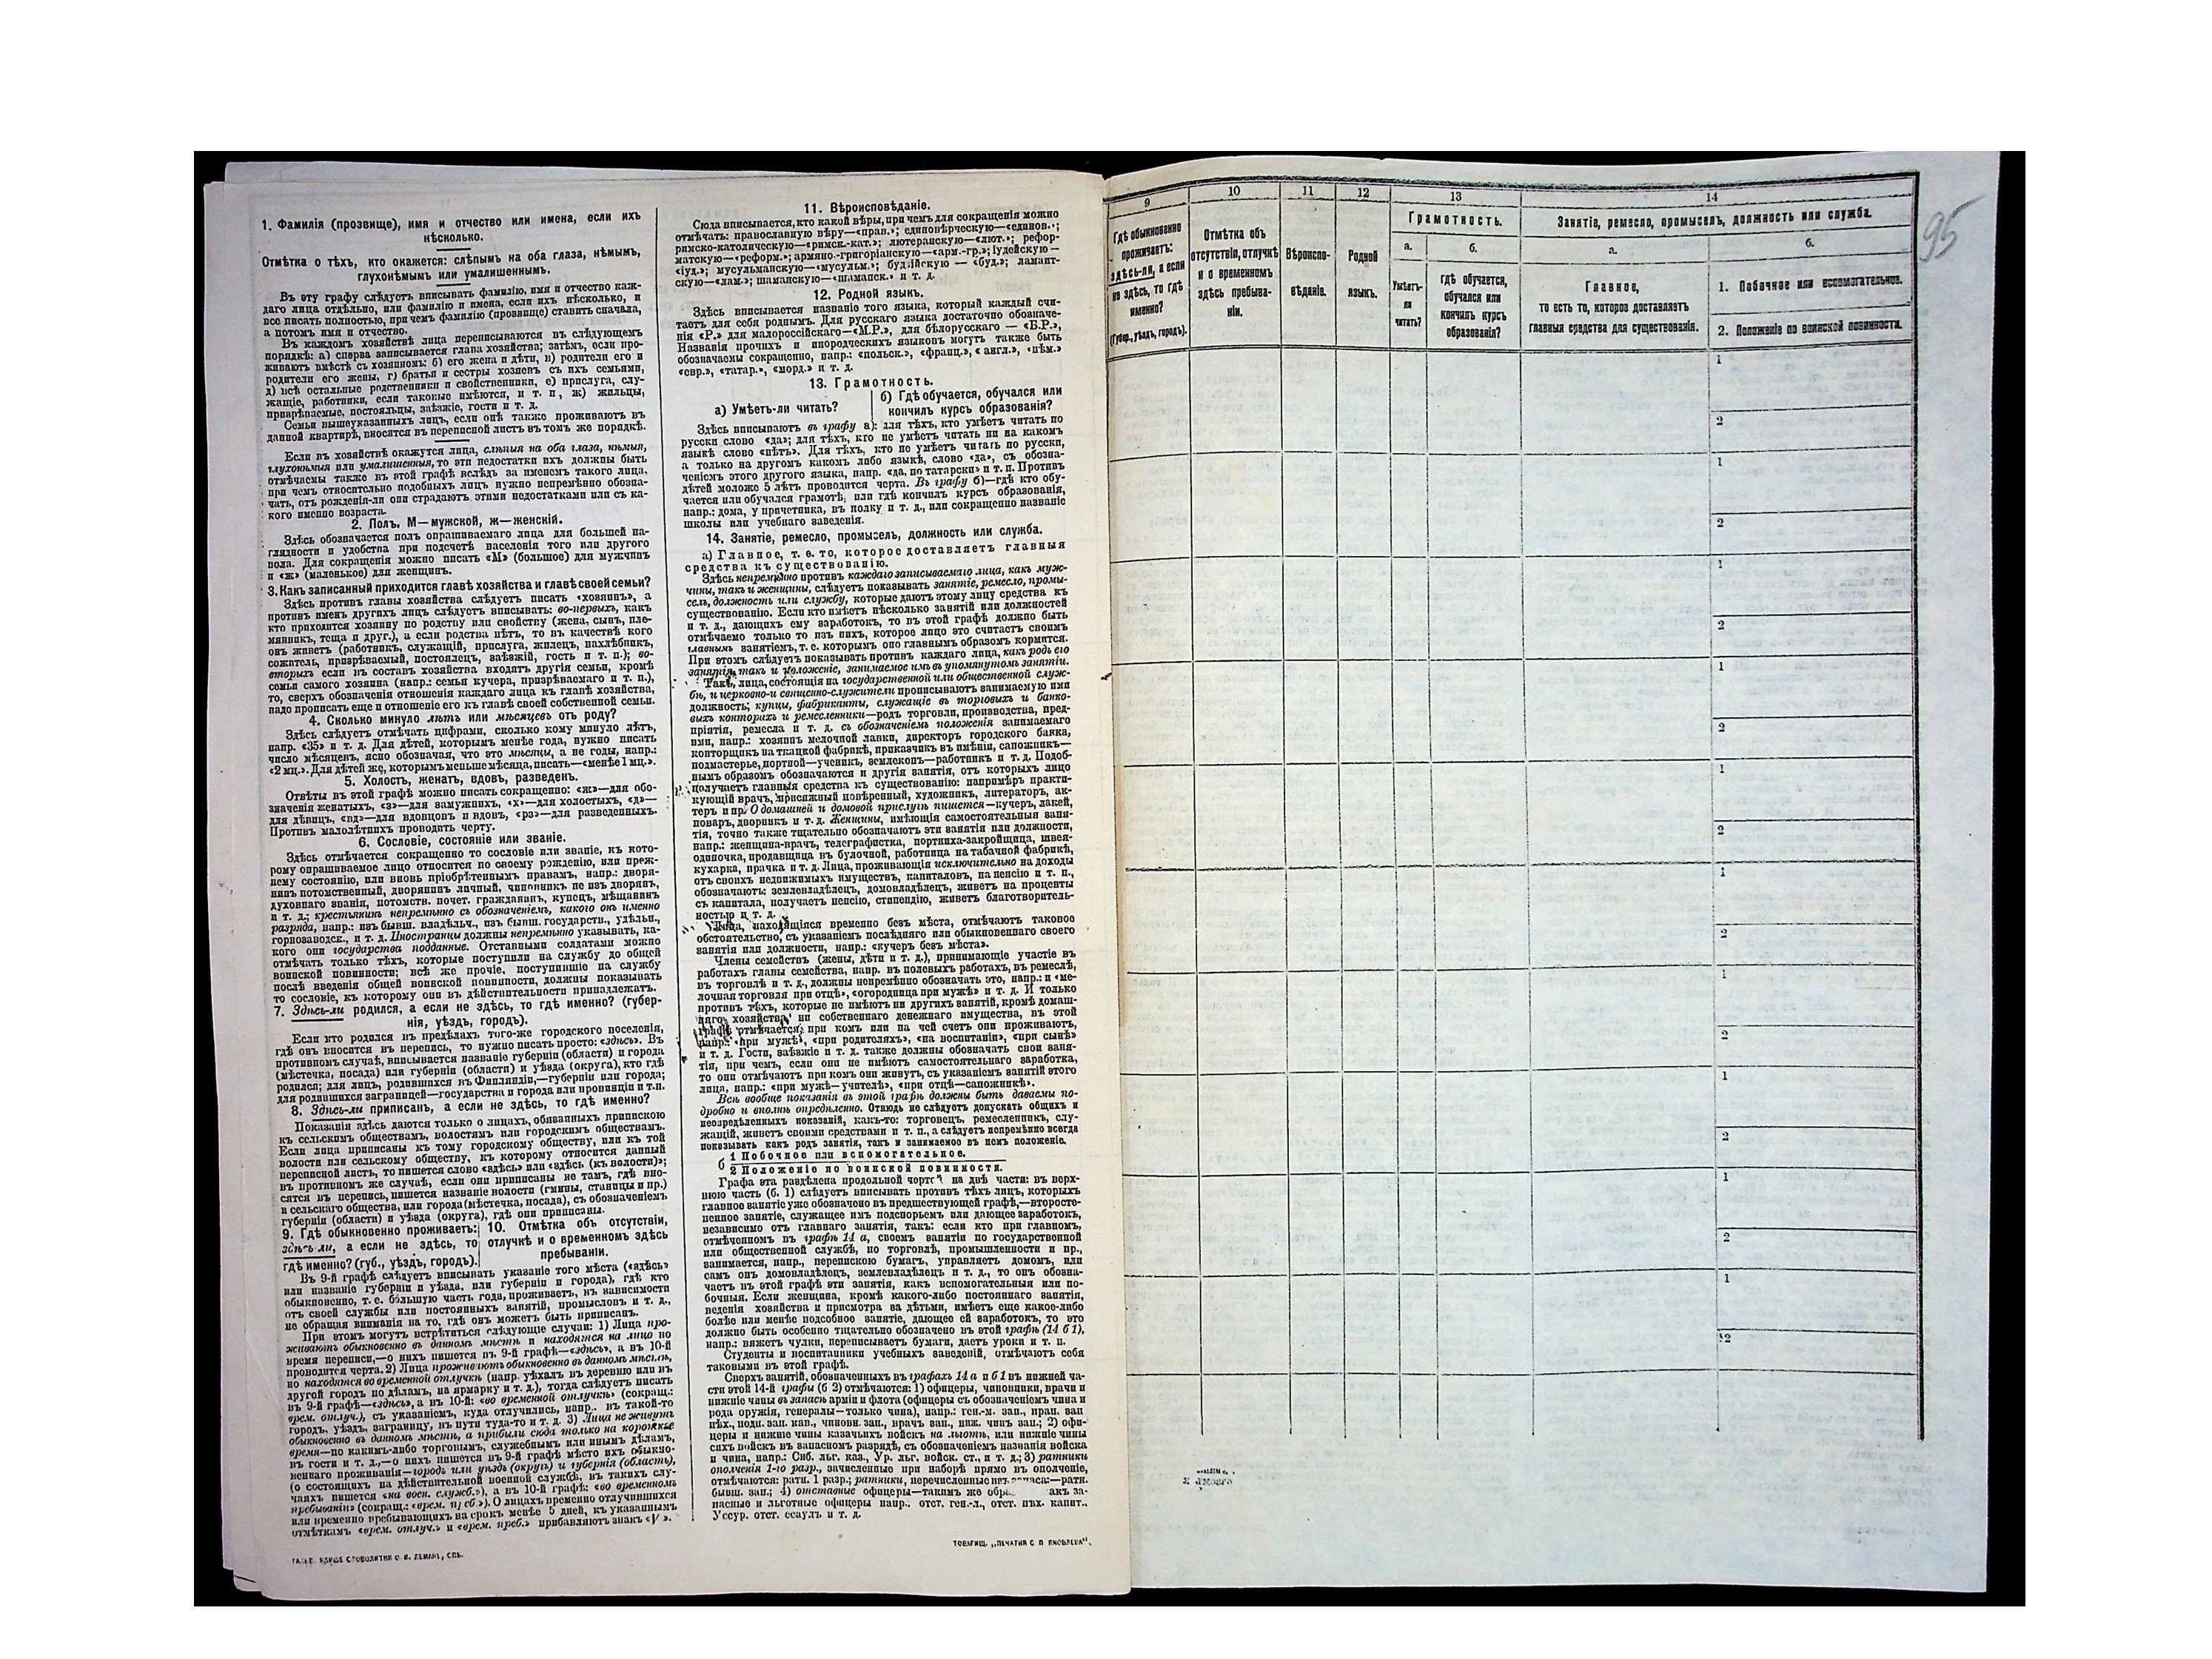 1. Фамилія (прозвище), имя и отчество или имена, если ихъ
нѣсколько.
Отмѣтка о тѣхъ, кто окажется: слѣпымъ на оба глаза, нѣмымъ,
глухонѣмымъ или умалишеннымъ.
Въ эту графу слѣдуетъ вписывать фамилію, имя и отчество каж-
даго лица отдѣльно, или фамилію и имена, если ихъ нѣсколько, и
все писать полностью, при чемъ фамилію (прозвище) ставить сначала,
а потомъ имя и отчество.
Въ каждомъ хозяйствѣ лица переписываются въ слѣдующемъ
порядкѣ: а) сперва записывается глава хозяйства; затѣмъ, если про-
живаютъ вмѣстѣ съ хозяиномъ: б) его жена и дѣти, в) родители его и
родители его жены, г) братья и сестры хозяевъ съ ихъ семьями,
д) всѣ остальные родственники и свойственники, е) прислуга, слу-
жащіе, работники, если таковые имѣются, и т. п, ж) жильцы,
призрѣваемые, постояльцы, заѣзжіе, гости и т. д.
Семьи вышеуказанныхъ лицъ, если онѣ также проживаютъ въ
данной квартирѣ, вносятся въ переписной листъ въ томъ же порядкѣ.
Если въ хозяйствѣ окажутся лица, слѣпыя на оба глаза, нѣмыя,
глухонѣмыя или умалишенныя, то эти недостатки ихъ должны быть
отмѣчаемы также въ этой графѣ вслѣдъ за именемъ такого лица,
при чемъ относительно подобныхъ лицъ нужно непремѣнно обозна-
чать, отъ рожденія-ли они страдаютъ этими недостатками или съ ка-
кого именно возраста.
2. Полъ. М—мужской, ж—женскій.
Здѣсь обозначается полъ опрашиваемаго лица для большей на-
глядности и удобства при подсчетѣ населенія того или другого
пола. Для сокращенія можно писать «М» (большое) для мужчинъ
и «ж» (маленькое) для женщинъ.
3. Какъ записанный приходится главѣ хозяйства и главѣ своей семьи?
Здѣсь противъ главы хозяйства слѣдуетъ писать «хозяинъ», а
противъ именъ другихъ лицъ слѣдуетъ вписывать: во-первыхъ, какъ
кто приходится хозяину по родству или свойству (жена, сынъ, пле-
мянникъ, теща и друг.), а если родства нѣтъ, то въ качествѣ кого
онъ живетъ (работникъ, служащій, прислуга, жилецъ, нахлѣбникъ,
сожитель, призрѣваемый, постоялецъ, заѣзжій, гость и т. п.); во-
вторыхъ если въ составъ хозяйства входятъ другія семьи, кромѣ
семьи самого хозяина (напр.: семья кучера, призрѣваемаго и т. п.),
то, сверхъ обозначенія отношенія каждаго лица къ главѣ хозяйства,
надо прописать еще и отношеніе его къ главѣ своей собственной семьи.
4. Сколько минуло лѣтъ или мѣсяцевъ отъ роду?
Здѣсь слѣдуетъ отмѣчать цифрами, сколько кому минуло лѣтъ,
напр. «35» и т. д. Для дѣтей, которымъ менѣе года, нужно писать
число мѣсяцевъ, ясно обозначая, что это мѣсяцы, а не годы, напр.:
«2 мц.». Для дѣтей же, которымъ меньше мѣсяца, писать—«менѣе 1 мц.».
5. Холостъ, женатъ, вдовъ, разведенъ.
Отвѣты въ этой графѣ можно писать сокращенно: «ж»—для обо-
значенія женатыхъ, «з»—для замужнихъ, «х»—для холостыхъ, «д»—
для дѣвицъ, «вд»—для вдовцовъ и вдовъ, «рз»—для разведенныхъ.
Противъ малолѣтнихъ проводить черту.
6. Сословіе, состояніе или званіе.
Здѣсь отмѣчается сокращенно то сословіе или званіе, къ кото-
рому опрашиваемое лицо относится по своему рожденію, или преж-
нему состоянію, или вновь пріобрѣтеннымъ правамъ, напр.: дворя-
нинъ потомственный, дворянинъ личный, чиновникъ не изъ дворянъ,
духовнаго званія, потомств. почет. гражданинъ, купецъ, мѣщанинъ
и т. д.; крестьянинъ непремѣнно съ обозначеніемъ, какого онъ именно
разряда, напр.: изъ бывш. владѣльч., изъ бывш. государств., удѣльн.,
горнозаводск., и т. д. Иностранцы должны непремѣнно указывать, ка-
кого они государства подданные. Отставными солдатами можно
отмѣчать только тѣхъ, которые поступили на службу до общей
воинской повинности; всѣ же прочіе, поступившіе на службу
послѣ введенія общей воинской повинности, должны показывать
то сословіе, къ которому они въ дѣйствительности принадлежатъ.
7. Здѣсь-ли родился, а если не здѣсь, то гдѣ именно? (губер-
нія, уѣздъ, городъ).
Если кто родился въ предѣлахъ того-же городского поселенія,
гдѣ онъ вносится въ перепись, то нужно писать просто: «здѣсь». Въ
противномъ случаѣ, вписывается названіе губерніи (области) и города
(мѣстечка, посада) или губерніи (области) и уѣзда (округа), кто гдѣ
родился; для лицъ, родившихся въ Финляндіи,—губерніи или города;
для родившихся заграницей—государства и города или провинціи и т.п.
8. Здѣсь-ли приписанъ, а если не здѣсь, то гдѣ именно?
Показанія здѣсь даются только о лицахъ, обязанныхъ припискою
къ сельскимъ обществамъ, волостямъ или городскимъ обществамъ.
Если лица приписаны къ тому городскому обществу, или къ той
волости или сельскому обществу, къ которому относится данный
переписной листъ, то пишется слово «здѣсь» или «здѣсь (къ волости)»;
въ противномъ же случаѣ, если они приписаны не тамъ, гдѣ вно-
сятся въ перепись, пишется названіе волости (гмины, станицы и пр.)
и сельскаго общества, или города (мѣстечка, посада), съ обозначеніемъ
губерніи (области) и уѣзда (округа), гдѣ они приписаны.
9. Гдѣ обыкновенно проживаетъ:
здѣсь-ли, а если не здѣсь, то
гдѣ именно? (губ., уѣздъ, городъ).
10. Отмѣтка объ отсутствіи,
отлучкѣ и о временномъ здѣсь
пребываніи.
Въ 9-й графѣ слѣдуетъ вписывать указаніе того мѣста («здѣсь»
или названіе губерніи и уѣзда, или губерніи и города), гдѣ кто
обыкновенно, т. е. бо́льшую часть года, проживаетъ, въ зависимости
отъ своей службы или постоянныхъ занятій, промысловъ и т. д.,
не обращая вниманія на то, гдѣ онъ можетъ быть приписанъ.
При этомъ могутъ встрѣтиться слѣдующіе случаи: 1) Лица про-
живаютъ обыкновенно въ данномъ мѣстѣ и находятся на лицо во
время переписи,—о нихъ пишется въ 9-й графѣ—«здѣсь», а въ 10-й
проводится черта. 2) Лица проживаютъ обыкновенно въ данномъ мѣстѣ,
но находятся во временной отлучкѣ (напр. уѣхалъ въ деревню или въ
другой городъ по дѣламъ, на ярмарку и т. д.), тогда слѣдуетъ писать
въ 9-й графѣ—«здѣсь», а въ 10-й: «во временной отлучкѣ» (сокращ.:
врем. отлуч.), съ указаніемъ, куда отлучились, напр.. въ такой-то
городъ, уѣздъ, заграницу, въ пути туда-то и т. д. 3) Лица не живутъ
обыкновенно въ данномъ мѣстѣ, а прибыли сюда только на короткое
время—по какимъ-либо торговымъ, служебнымъ или инымъ дѣламъ,
въ гости и т. д.,—о нихъ пишется въ 9-й графѣ мѣсто ихъ обыкно-
веннаго проживанія—городъ или уѣздъ (округъ) и губернія (область),
(о состоящихъ на дѣйствительной военной службѣ, въ такихъ слу-
чаяхъ пишется «на воен. служб.»), а въ 10-й графѣ: «во временномъ
пребываніи» (сокращ.: «врем. преб.»). О лицахъ временно отлучившихся
или временно пребывающихъ на срокъ менѣе 5 дней, къ указаннымъ
отмѣткамъ «врем. отлуч.» и «врем. преб.» прибавляютъ знакъ «V».
СЛОВОЛИТНЯ О. И. ЛЕМАНЪ, СПБ.
11. Вѣроисповѣданіе.
Сюда вписывается, кто какой вѣры, при чемъ для сокращенія можно
отмѣчать: православную вѣру—«прав.»; единовѣрческую—«единов.»;
римско-католическую—«римск.-кат.»; лютеранскую—«лют.»; рефор-
матскую—«реформ.»; армяно-григоріанскую—«арм.-гр.»; іудейскую—
«іуд.»; мусульманскую—«мусульм.»; буддійскую — «буд.»; ламант-
скую—«лам.»; шаманскую—«шаманск.» и т. д.
12. Родной языкъ.
Здѣсь вписывается названіе того языка, который каждый счи-
таетъ для себя роднымъ. Для русскаго языка достаточно обозначе-
нія «Р.» для малороссійскаго—«М.Р.», для бѣлорусскаго — «Б.Р.»,
Названія прочихъ и инородческихъ языковъ могутъ также быть
обозначаемы сокращенно, напр.: «польск.», «франц.», « англ.», «нѣм.»
«евр.», «татар.», «морд.» и т. д.
13. Грамотность.
а) Умѣетъ-ли читать?
б) Гдѣ обучается, обучался или
кончилъ курсъ образованія?
Здѣсь вписываютъ въ графу а): для тѣхъ, кто умѣетъ читать по
русски слово «да»; для тѣхъ, кто не умѣетъ читать ни на какомъ
языкѣ слово «нѣтъ». Для тѣхъ, кто не умѣетъ читать по русски,
а только на другомъ какомъ либо языкѣ, слово «да», съ обозна-
ченіемъ этого другого языка, напр. «да, по татарски» и т. п. Противъ
дѣтей моложе 5 лѣтъ проводится черта. Въ графу б)—гдѣ кто обу-
чается или обучался грамотѣ, или гдѣ кончилъ курсъ образованія,
напр.: дома, у причетника, въ полку и т. д., или сокращенно названіе
школы или учебнаго заведенія.
14. Занятіе, ремесло, промыселъ, должность или служба.
а) Главное, т. е. то, которое доставляетъ главныя
средства къ существованію.
Здѣсь непремѣнно противъ каждаго записываемаго лица, какъ муж-
чины, такъ и женщины, слѣдуетъ показывать занятіе, ремесло, промы-
селъ, должность или службу, которые даютъ этому лицу средства къ
существованію. Если кто имѣетъ нѣсколько занятій или должностей
и т. д., дающихъ ему заработокъ, то въ этой графѣ должно быть
отмѣчаемо только то изъ нихъ, которое лицо это считаетъ своимъ
главнымъ занятіемъ, т. е. которымъ оно главнымъ образомъ кормится.
При этомъ слѣдуетъ показывать противъ каждаго лица, какъ родъ его
занятія, такъ и положеніе, занимаемое имъ въ упомянутомъ занятіи.
Такъ, лица, состоящія на государственной или общественной служ-
бѣ, и церковно-и священно-служители прописываютъ занимаемую ими
должность; купцы, фабриканты, служащіе въ торговыхъ и банко-
выхъ конторахъ и ремесленники—родъ торговли, производства, пред-
пріятія, ремесла и т. д. съ обозначеніемъ положенія занимаемаго
ими, напр.: хозяинъ мелочной лавки, директоръ городского банка,
конторщикъ на ткацкой фабрикѣ, приказчикъ въ имѣніи, сапожникъ—
подмастерье, портной—ученикъ, землекопъ—работникъ и т. д. Подоб-
нымъ образомъ обозначаются и другія занятія, отъ которыхъ лицо
получаетъ главныя средства къ существованію: напримѣръ практи-
кующій врачъ, присяжный повѣренный, художникъ, литераторъ, ак-
теръ и пр. О домашней и домовой прислугѣ пишется—кучеръ, лакей,
поваръ, дворникъ и т. д. Женщины, имѣющія самостоятельныя заня-
тія, точно также тщательно обозначаютъ эти занятія или должности,
напр.: женщина-врачъ, телеграфистка, портниха-закройщица, швея-
одиночка, продавщица въ булочной, работница на табачной фабрикѣ,
кухарка, прачка и т. д. Лица, проживающія исключительно на доходы
отъ своихъ недвижимыхъ имуществъ, капиталовъ, на пенсію и т. п.,
обозначаютъ: землевладѣлецъ, домовладѣлецъ, живетъ на проценты
съ капитала, получаетъ пенсію, стипендію, живетъ благотворитель-
ностью и т. д.
Лица, находящіяся временно безъ мѣста, отмѣчаютъ таковое
обстоятельство, съ указаніемъ послѣдняго или обыкновеннаго своего
занятія или должности, напр.: «кучеръ безъ мѣста».
Члены семействъ (жены, дѣти и т. д.), принимающіе участіе въ
работахъ главы семейства, напр. въ полевыхъ работахъ, въ ремеслѣ,
въ торговлѣ и т. д., должны непремѣнно обозначать это, напр.: и «ме-
лочная торговля при отцѣ», «огородница при мужѣ» и т. д. И только
противъ тѣхъ, которые не имѣютъ ни другихъ занятій, кромѣ домаш-
няго хозяйства, ни собственнаго денежнаго имущества, въ этой
графѣ отмѣчается, при комъ или на чей счетъ они проживаютъ,
напр.: «при мужѣ», «при родителяхъ», «на воспитаніи», «при сынѣ»
и т. д. Гости, заѣзжіе и т. д. также должны обозначать свои заня-
тія, при чемъ, если они не имѣютъ самостоятельнаго заработка,
то они отмѣчаютъ при комъ они живутъ, съ указаніемъ занятій этого
лица, напр.: «при мужѣ—учителѣ», «при отцѣ—сапожникѣ».
Всѣ вообще показанія въ этой графѣ должны быть даваемы по-
дробно и вполнѣ опредѣленно. Отнюдь не слѣдуетъ допускать общихъ и
неопредѣленныхъ показаній, какъ-то: торговецъ, ремесленникъ, слу-
жащій, живетъ своими средствами и т. п., а слѣдуетъ непремѣнно всегда
показывать какъ родъ занятія, такъ и занимаемое въ немъ положеніе.
б 1 Побочное или вспомогательное.
2 Положеніе по воинской повинности.
Графа эта раздѣлена продольной чертой на двѣ части: въ верх-
нюю часть (б. 1) слѣдуетъ вписывать противъ тѣхъ лицъ, которыхъ
главное занятіе уже обозначено въ предшествующей графѣ,—второсте-
пенное занятіе, служащее имъ подспорьемъ или дающее заработокъ,
независимо отъ главнаго занятія, такъ: если кто при главномъ,
отмѣченномъ въ графѣ 14 а, своемъ занятіи по государственной
или общественной службѣ, по торговлѣ, промышленности и пр.,
занимается, напр., перепискою бумагъ, управляетъ домомъ, или
самъ онъ домовладѣлецъ, землевладѣлецъ и т. д., то онъ обозна-
чаетъ въ этой графѣ эти занятія, какъ вспомогательныя или по-
бочныя. Если женщина, кромѣ какого-либо постояннаго занятія,
веденія хозяйства и присмотра за дѣтьми, имѣетъ еще какое-либо
болѣе или менѣе подсобное занятіе, дающее ей заработокъ, то это
должно быть особенно тщательно обозначено въ этой графѣ (14 б 1),
напр.: вяжетъ чулки, переписываетъ бумаги, даетъ уроки и т. п.
Студенты и воспитанники учебныхъ заведеній, отмѣчаютъ себя
таковыми въ этой графѣ.
Сверхъ занятій, обозначенныхъ въ графахъ 14 а и б 1 въ нижней ча-
сти этой 14-й графы (б 2) отмѣчаются: 1) офицеры, чиновники, врачи и
нижніе чины въ запасѣ арміи и флота (офицеры съ обозначеніемъ чина и
рода оружія, генералы—только чина), напр.: ген.-м. зап., прап. зап
пѣх., подп. зап. кав., чиновн. зап., врачъ зап., ниж. чинъ зап.; 2) офи-
церы и нижніе чины казачьихъ войскъ на льготѣ, или нижніе чины
сихъ войскъ въ запасномъ разрядѣ, съ обозначеніемъ названія войска
и чина, напр.: Сиб. льг. каз., Ур. льг. войск. ст., и т. д.; 3) ратники
ополченія 1-го разр., зачисленные при наборѣ прямо въ ополченіе,
отмѣчаются: ратн. 1 разр.; ратники, перечисленные —ратн.
бывш. зап.; 4) отставные офицеры—такимъ же акъ за-
пасные и льготные офицеры напр.. отст. ген.-л., отст. пѣх. капит.,
Уссур. отст. есаулъ и т. д.
ТОВАРИЩ. „ПЕЧАТНЯ С. П. ЯКОВЛЕВА“.
95
9 10 11 12 13 14
Гдѣ обыкновенно
проживаетъ:
здѣсь-ли, а если
не здѣсь, то гдѣ
именно?
(Губер., уѣздъ, городъ).
Отмѣтка объ
отсутствіи, отлучкѣ
и о временномъ
здѣсь пребыва-
ніи.
Вѣроиспо-
вѣданіе.
Родной
языкъ.
Грамотность.
а.
Умѣетъ-
ли
читать?
б.
Гдѣ обучается,
обучался или
кончилъ курсъ
образованія?
Занятіе, ремесло, промыселъ, должность или служба.
а.
Главное,
то есть то, которое доставляетъ
главныя средства для существованія.
б.
1. Побочное или вспомогательное.
2. Положеніе по воинской повинности.
1
2
1
2
1
2
1
2
1
2
1
2
1
2
1
2
1
2
1
2